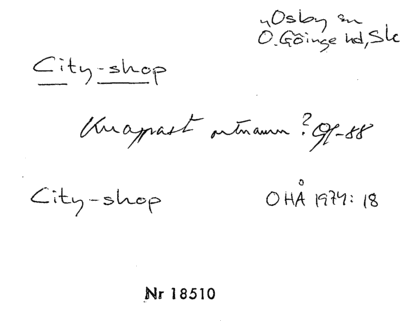 Osby sn
Ö. Göinge hd, Sk
City-shop
Knappast ortnamn? GF-88
City-shop OHÅ 1974: 18
Nr 18510